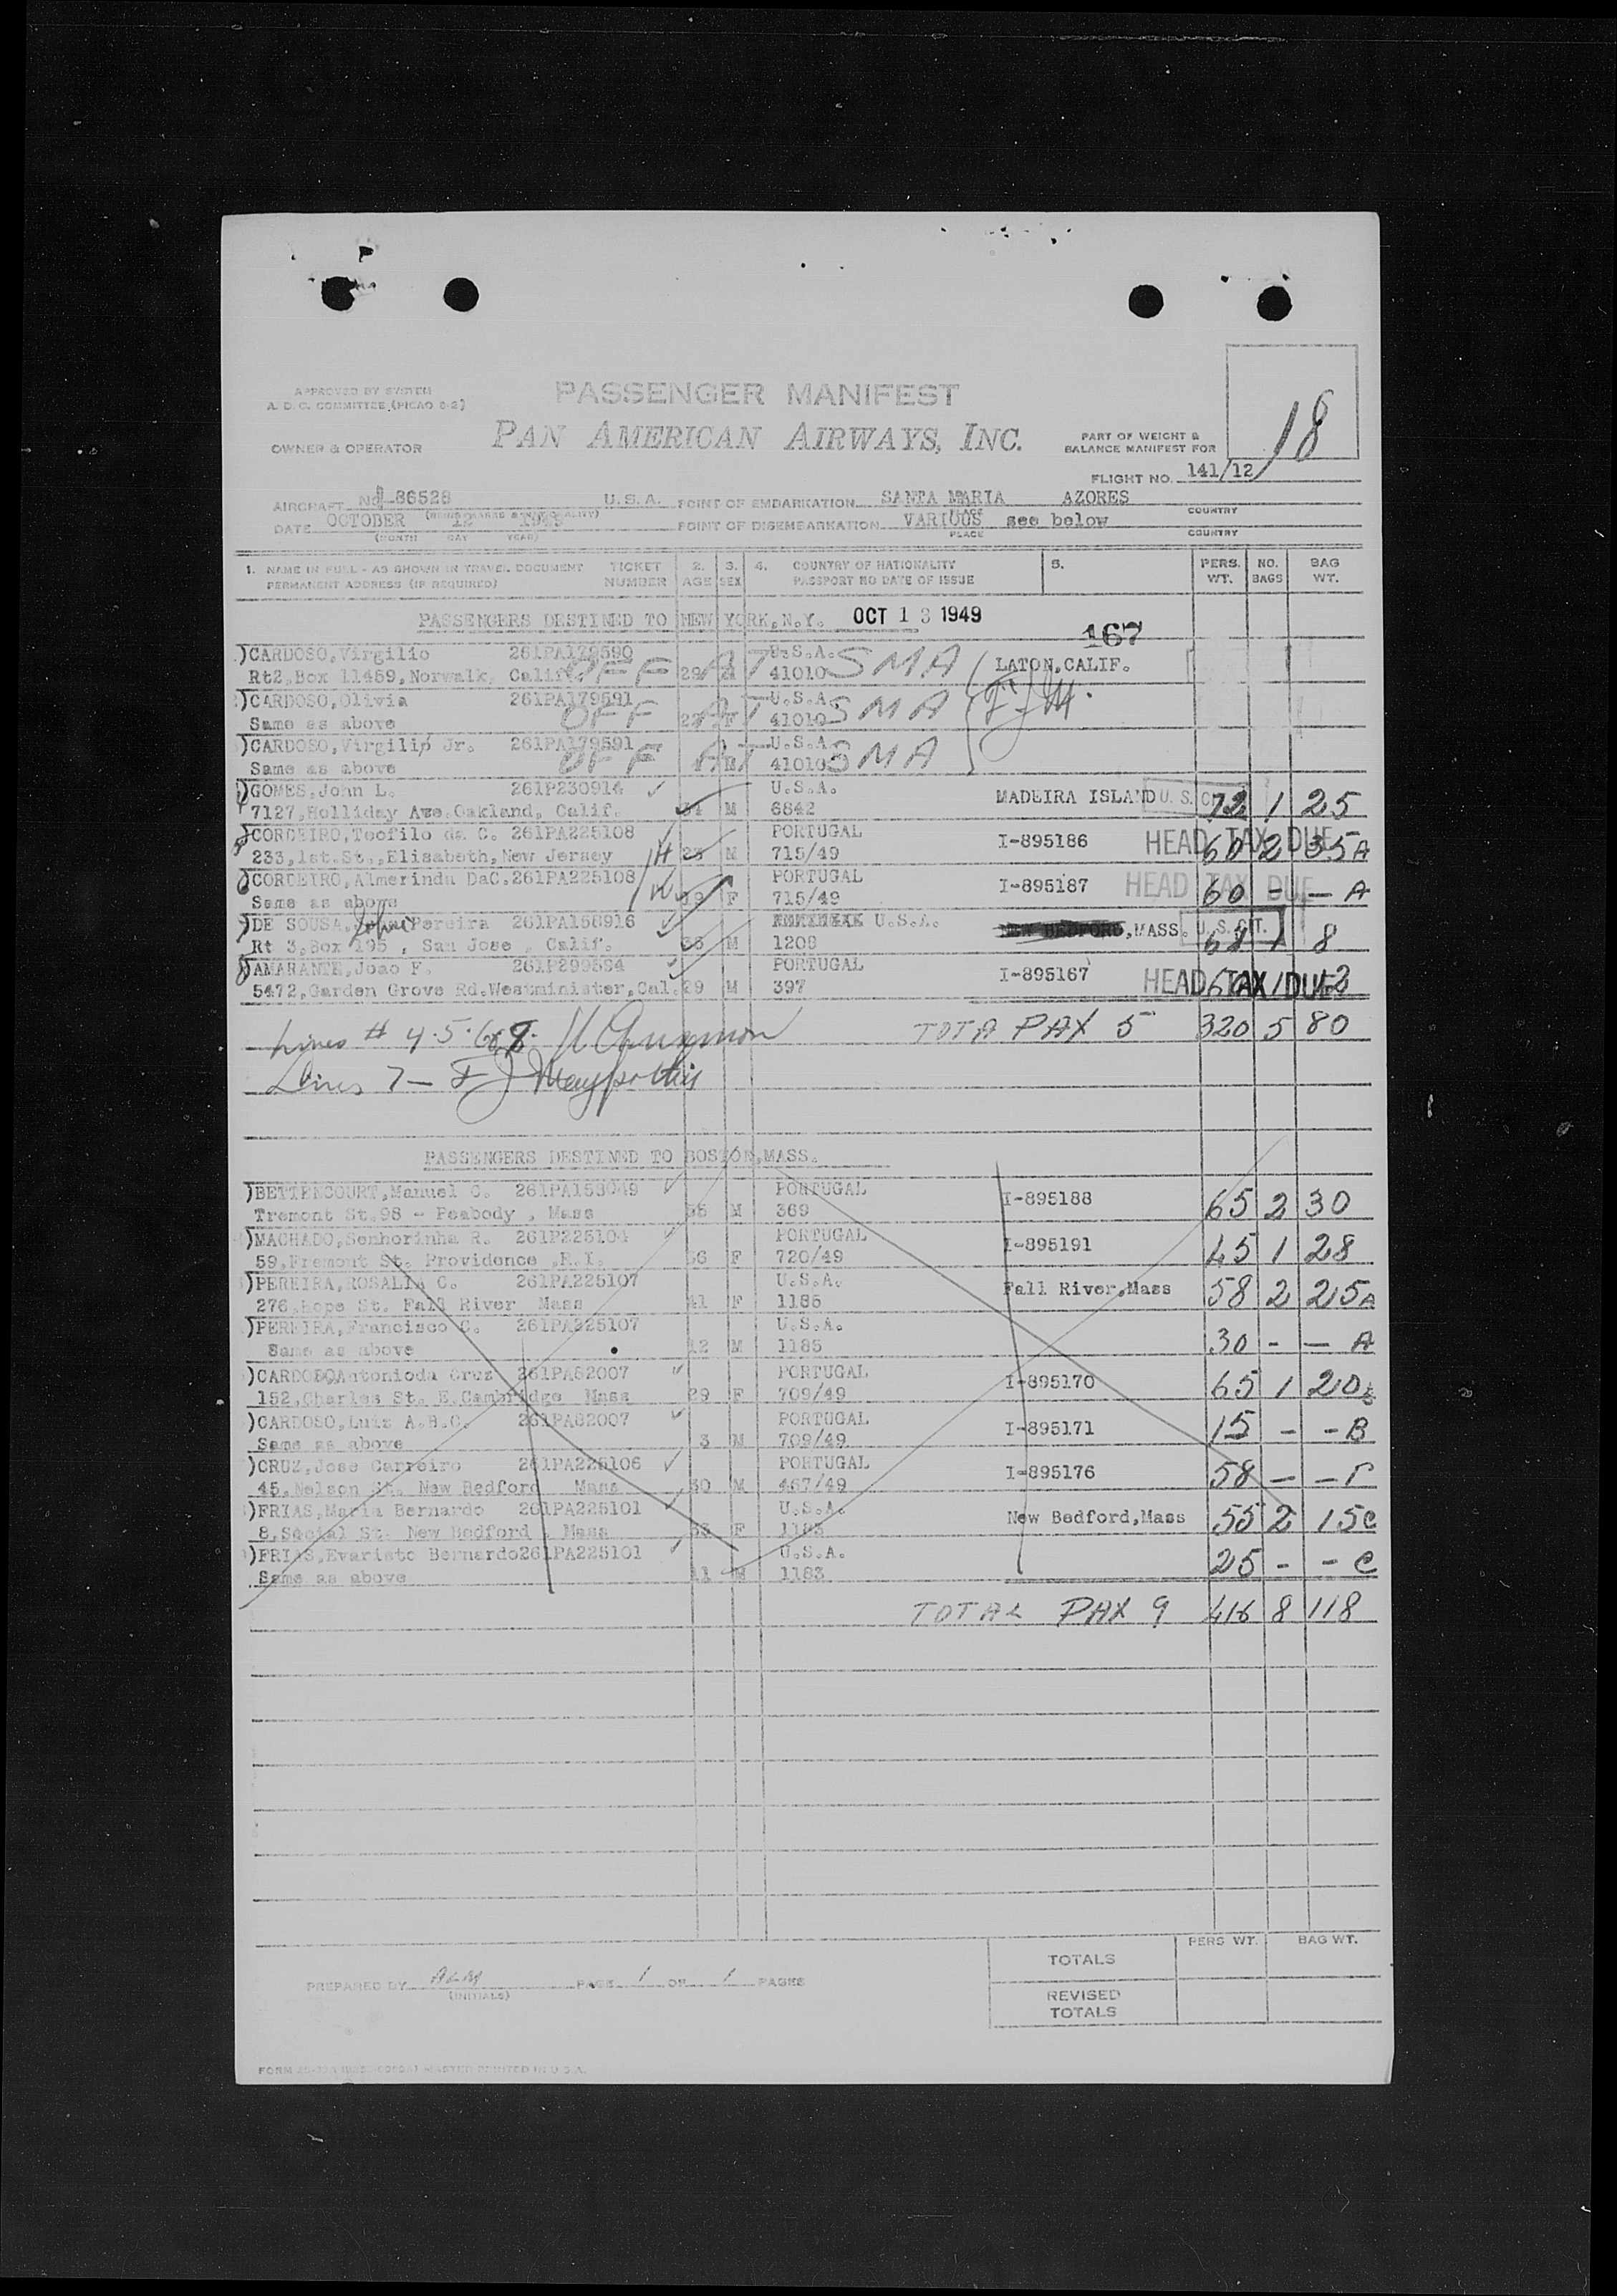 APPROVED BY SYSTEM
A. D. C. COMMITTEE (PICAO 6-2)
OWNER & OPERATOR
PASSENGER MANIFEST
PAN AMERICAN AIRWAYS, INC.
PART OF WEIGHT &
BALANCE MANIFEST FOR
18
FLIGHT NO. 141/12
AIRCRAFT 86528 U.S.A. POINT OF EMBARKATION SANTA MARIA AZORES
DATE OCTOBER 12 1949 POINT OF DISEMBARKATION VARIOUS see below
(MONTH DAY YEAR) PLACE COUNTRY
1. NAME IN FULL - AS SHOWN IN TRAVEL DOCUMENT TICKET 2. 3. 4. COUNTRY OF NATIONALITY 5. PERS. NO. BAG
PERMANENT ADDRESS (IF REQUIRED) NUMBER AGE SEX PASSPORT NO DATE OF ISSUE WT. BAGS WT.
PASSENGERS DESTINED TO NEW YORK, N.Y. OCT 13 1949
167
)CARDOSO,Virgilio 261PA179590 U.S.A.
Rt2,Box 11459,Norwalk, Calif. OFF 29 AT 41010 SMA LATON,CALIF.
)CARDOSO,Olivia 261PA179591 U.S.A.
Same as above OFF AT F 41010 SMA
)CARDOSO,Virgilio Jr. 261PA179591 U.S.A.
Same as above OFF AT 41010 SMA
)GOMES,John L. 261P230914 U.S.A. MADEIRA ISLAND U. S. C
7127,Holliday Ave.Oakland, Calif. M 6842 72 1 25
)CORDEIRO,Teofilo da C. 261PA225108 PORTUGAL I-895186 HEAD TAX DUE
233,1st.St.,Elisabeth,New Jersey M 715/49 60 2 35 A
)CORDEIRO,Almerinda DaC.261PA225108 PORTUGAL I-895187 HEAD TAX DUE
Same as above F 715/49 60 - — A
)DE SOUSA, John Pereira 261PA158916 U.S.A. NEW BEDFORD,MASS.
Rt 3,Box 195 , San Jose , Calif. M 1208 1 8
)AMARANTE,Joao F. 261P299594 PORTUGAL I-895167 HEAD TAX DUE
5472,Garden Grove Rd.Westminister,Cal.29 M 397
Lines # 4.5.6 & 8.
TOTA PAX 5 320 5 80
Lines 7 —
PASSENGERS DESTINED TO BOSTON,MASS.
)BETTENCOURT,Manuel C. 261PA153049 PORTUGAL I-895188
Tremont St.98 - Peabody , Mass M 369 65 2 30
)MACHADO,Senhorinha R. 261P225104 PORTUGAL I-895191
59,Fremont St. Providence ,R.I. 56 F 720/49 45 1 28
)PEREIRA,ROSALIA C. 261PA225107 U.S.A. Fall River,Mass
276,Hope St. Fall River Mass 41 F 1185 58 2 25A
)PEREIRA,Francisco C. 261PA225107 U.S.A.
Same as above 12 M 1185 30 - — A
)CARDOSO,Antonioda Cruz 261PA82007 PORTUGAL I-895170
152,Charles St. E.Cambridge Mass 29 F 709/49 65 1 20
)CARDOSO,Luis A.B.C. 261PA82007 PORTUGAL I-895171
Same as above 3 M 709/49 15 - - B
)CRUZ,Jose Carreiro 261PA225106 PORTUGAL I-895176
45,Nelson St. New Bedford Mass 30 M 467/49 58 — —
)FRIAS,Maria Bernardo 261PA225101 U.S.A. New Bedford,Mass
8,Social St. New Bedford , Mass F 1183 55 2 15C
)FRIAS,Evaristo Bernardo261PA225101 U.S.A.
Same as above 11 M 1183 25 - - C
TOTAL PAX 9 416 8 118
PERS WT. BAG WT.
TOTALS
PREPARED BY ALM PAGE 1 OF 1 PAGES
(INITIALS)
REVISED
TOTALS